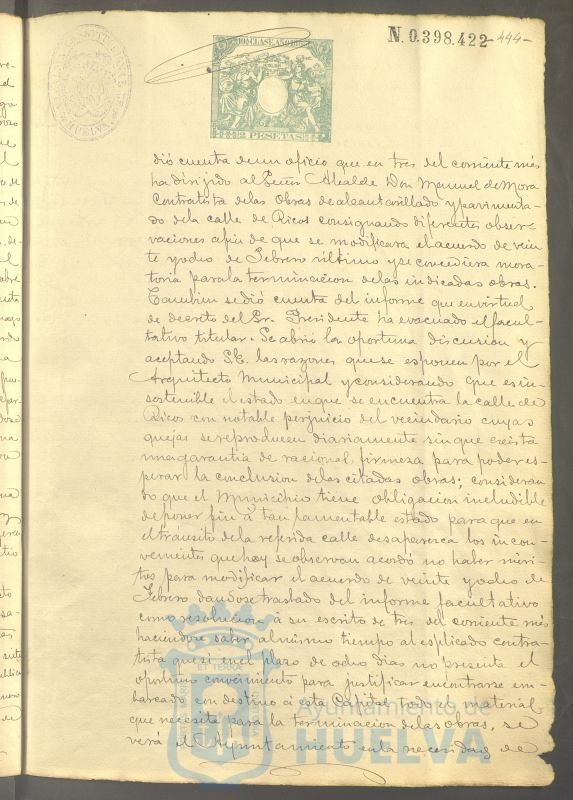 N. 0.398.422
-444-
10ª CLASE AÑO
2 PESETAS
dió cuenta de un oficio que en tres del corriente mes
ha dirijido al Señor Alcalde Don Manuel de Mora
Contratista de las Obras de alcantarillado y pavimenta-
do de la calle de Ricos consignando diferentes obser-
vaciones a fin de que se modificara el acuerdo de vein
te y ocho de Febrero último y se concediera mora-
toria para la terminacion de las indicadas obras.
Tambien se dió cuenta del informe que en virtud
de decreto del Sr. Presidente ha evacuado el facul-
tativo titular. Se abrió la oportuna discusion y
aceptando S.E. las razones que se esponen por el
Arquitecto Municipal y considerando que es in-
sostenible el estado en que se encuentra la calle de
Ricos con notable perjuicio del vecindario cuyas
quejas se reproducen diariamente sin que exista
una garantia de racional firmeza para poder es-
perar la conclusion de las citadas obras; consideran
do que el Municipio tiene obligacion ineludible
de poner fin á tan lamentable estado para que en
el tránsito de la referida calle desaparesca los incon-
venientes que hoy se observan acordó no haber meri-
tos para modificar el acuerdo de veinte y ocho de
Febrero dandose traslado del informe facultativo
como resolucion á su escrito de tres del corriente mes
haciendole saber al mismo tiempo al esplicado contra-
tista que si en el plazo de ocho dias no presenta el
oportuno conocimiento para justificar encontrarse em-
barcado con destino á esta Capital todo el material
que necesite para la terminacion de las obras, se
verá el Ayuntamiento en la necesidad de
Ayuntamiento de
HUELVA